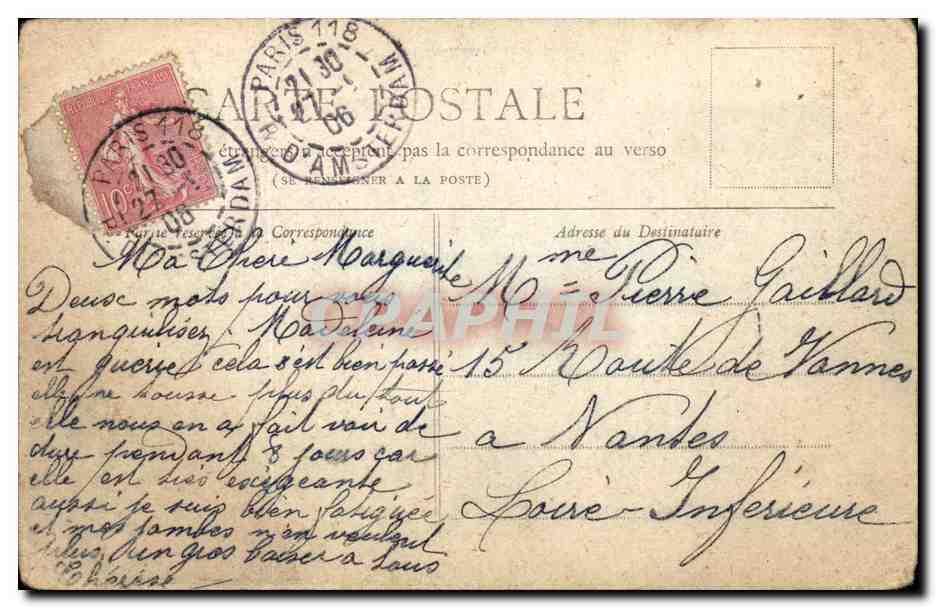 REPUBLIQUE FRANÇAISE
10c
PARIS 118
21 30
27
06
R. D'AMSTERDAM
PARIS 118
21 30
27
06
AMSTERDAM
CARTE POSTALE
étrangers n'acceptent pas la correspondance au verso
(SE RENSEIGNER A LA POSTE)
Partie réservée à la Correspondance
Adresse du Destinataire
Ma Chere Marguerite
Deuxc mots pour vous
tranquiliser. Madeleine
est guerie cela s'est bien passé
elle ne tousse plus du tout
elle nous en a fait voir de
dure pendant 8 jours car
elle en exigeante
aussi je suis bien fatiguée
et mes jambes n'en veulent
plus, un gros baiser a tous
Thérèse
Mme Pierre Gaillard
15 Route de Vannes
a Nantes
Loire-Inférieure
CPAPHIL